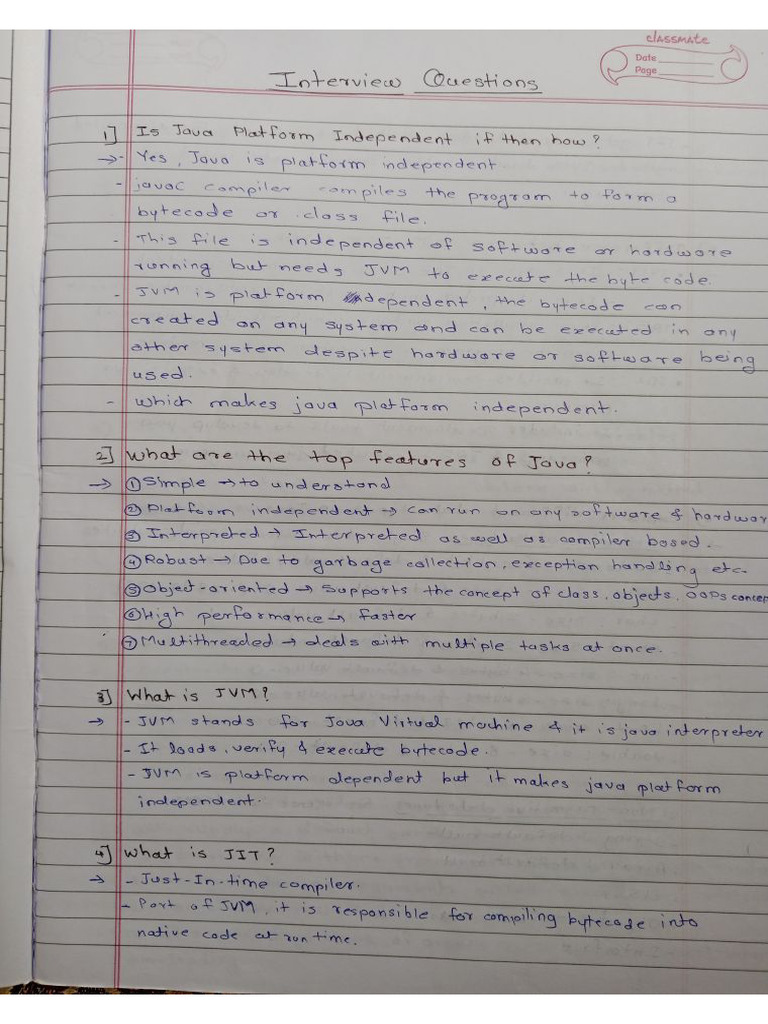 classmate
Date
Page
Interview Questions
1] Is Java Platform Independent if then how?
→ - Yes, Java is platform independent.
- javac compiler compiles the program to form a
bytecode or .class file.
- This file is independent of software or hardware
running but needs JVM to execute the byte code.
- JVM is platform dependent, the bytecode can
created on any system and can be executed in any
other system despite hardware or software being
used.
- which makes java platform independent.
2] What are the top features of Java?
→ ① Simple → to understand
② Platform independent → can run on any software & hardwar
③ Interpreted → Interpreted as well as compiler based.
④ Robust → Due to garbage collection, exception handling etc.
⑤ Object-oriented → supports the concept of class, objects, OOPs concep
⑥ High performance → faster
⑦ Multithreaded → deals with multiple tasks at once.
3] What is JVM?
→ - JVM stands for Java Virtual machine & it is java interpreter
- It loads, verify & execute bytecode.
- JVM is platform dependent but it makes java platform
independent.
4] What is JIT?
→ - Just-In-time compiler.
- Part of JVM, it is responsible for compiling bytecode into
native code at run time.